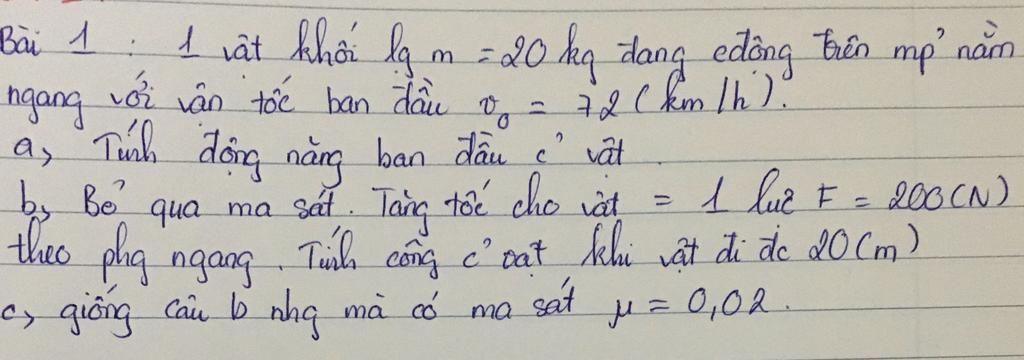 Bài 1 : 1 vật khối lg m = 20 kg đang cđông trên mp' nằm
ngang với vân tốc ban đầu v₀ = 72 (km/h).
a, Tính động năng ban đầu c' vật.
b, Bỏ qua ma sát. Tăng tốc cho vật = 1 lực F = 200 (N)
theo phg ngang. Tính công c' vật khi vật đi đc 20 (m)
c, giống câu b nhg mà có ma sát μ = 0,02.